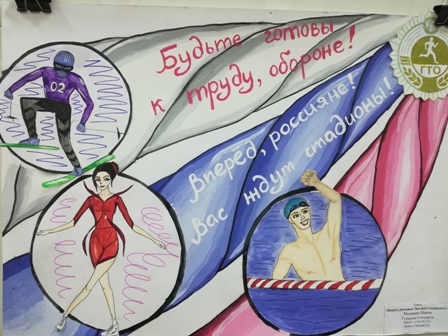 Будьте готовы
к труду, обороне!
ГТО
Вперёд, россияне!
Вас ждут стадионы!
02